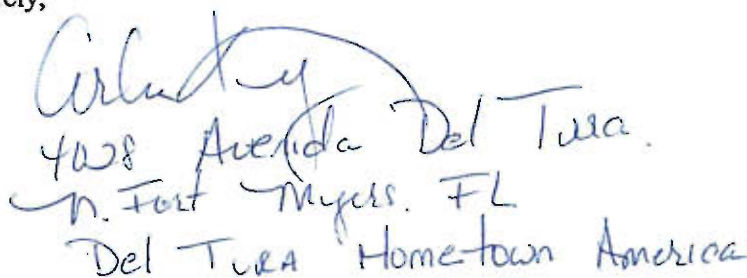 ely,
4028 Avenida Del Tura.
N. Fort Myers. FL
Del TURA Hometown America